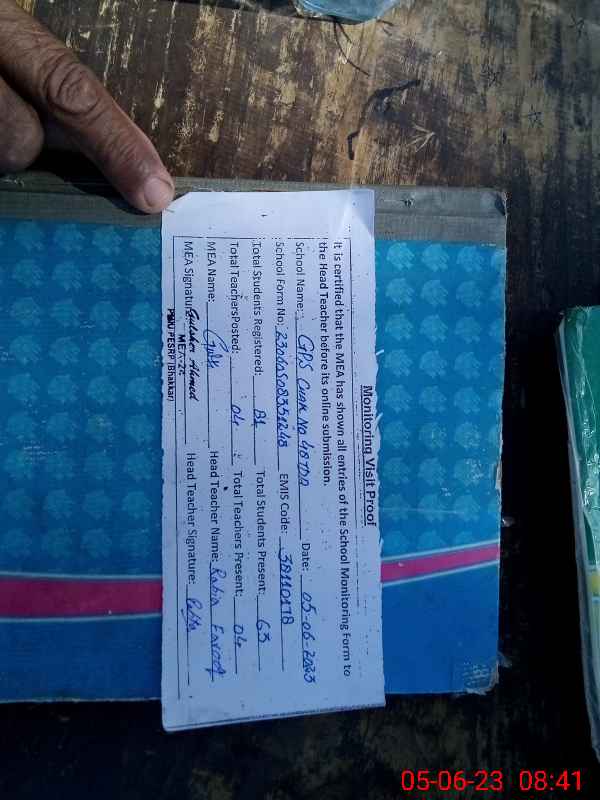 Monitoring Visit Proof
It is certified that the MEA has shown all entries of the School Monitoring Form to
the Head Teacher before its online submission.
School Name: GPS Chak No 48TDA Date: 05-06-2023
School Form No: EMIS Code: 38110178
Total Students Registered: 81 Total Students Present: 63
Total Teachers Posted: 04 Total Teachers Present: 04
MEA Name: Head Teacher Name: Rabia
MEA Signature: Gulsher Ahmed Head Teacher Signature:
MEA-24
PMU PESRP (Bhakkar)
05-06-23 08:41